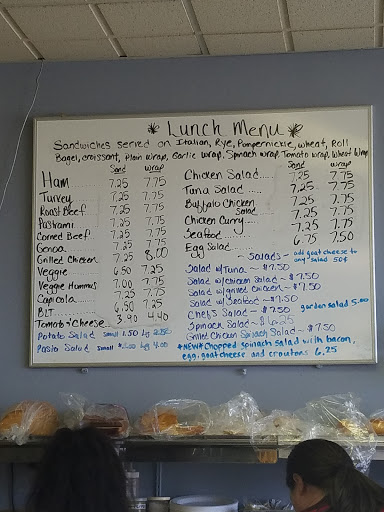 * Lunch Menu *
Sandwiches served on Italian, Rye, Pumpernickle, wheat, Roll
Bagel, croissant, Plain wrap, Garlic wrap, Spinach wrap, Tomato wrap, Wheat Wrap
Sand wrap
Ham 7.25 7.75
Turkey 7.25 7.75
Roast Beef 7.25 7.75
Pastrami 7.25 7.75
Corned Beef 7.25 7.75
Genoa 7.25 7.75
Grilled Chicken 7.25 8.00
Veggie 6.50 7.25
Veggie Hummus 7.00 7.75
Capicola 7.25 7.75
BLT 6.50 7.25
Tomato & Cheese 3.90 4.40
Potato Salad small 1.50 Lg
Pasta Salad small Lg 4.00
Sand wrap
Chicken Salad 7.25 7.75
Tuna Salad 7.25 7.75
Buffalo Chicken Salad 7.25 7.75
Chicken Curry 7.25 7.75
Seafood 7.25 7.75
Egg Salad 6.75 7.50
- Salads - add goat cheese to any salad 50¢
Salad w/Tuna ~ $7.50
Salad w/chicken Salad ~ $7.50
Salad w/grilled chicken ~ $7.50
Salad w/Seafood ~ $7.50
Chef's Salad ~ $7.50 garden salad 5.00
Spinach Salad ~ $6.25
Grilled Chicken Spinach Salad ~ $7.50
*NEW* Chopped spinach salad with bacon,
egg, goat cheese and croutons 6.25